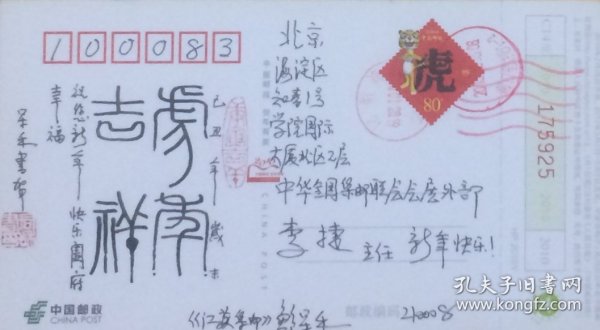 100083
北京
海淀区
知春路1号
学院国际
大厦北区2层
中华全国集邮联合会会展外部
李捷 主任 新年快乐！
《江苏集邮》
210008
虎年
吉祥
己丑年岁末
祝您新一年 快乐阖府
幸福
虎
80
175925
中国邮政
CHINA POST
CHINA POST
邮政编码
孔夫子旧书网
www.kongfz.com